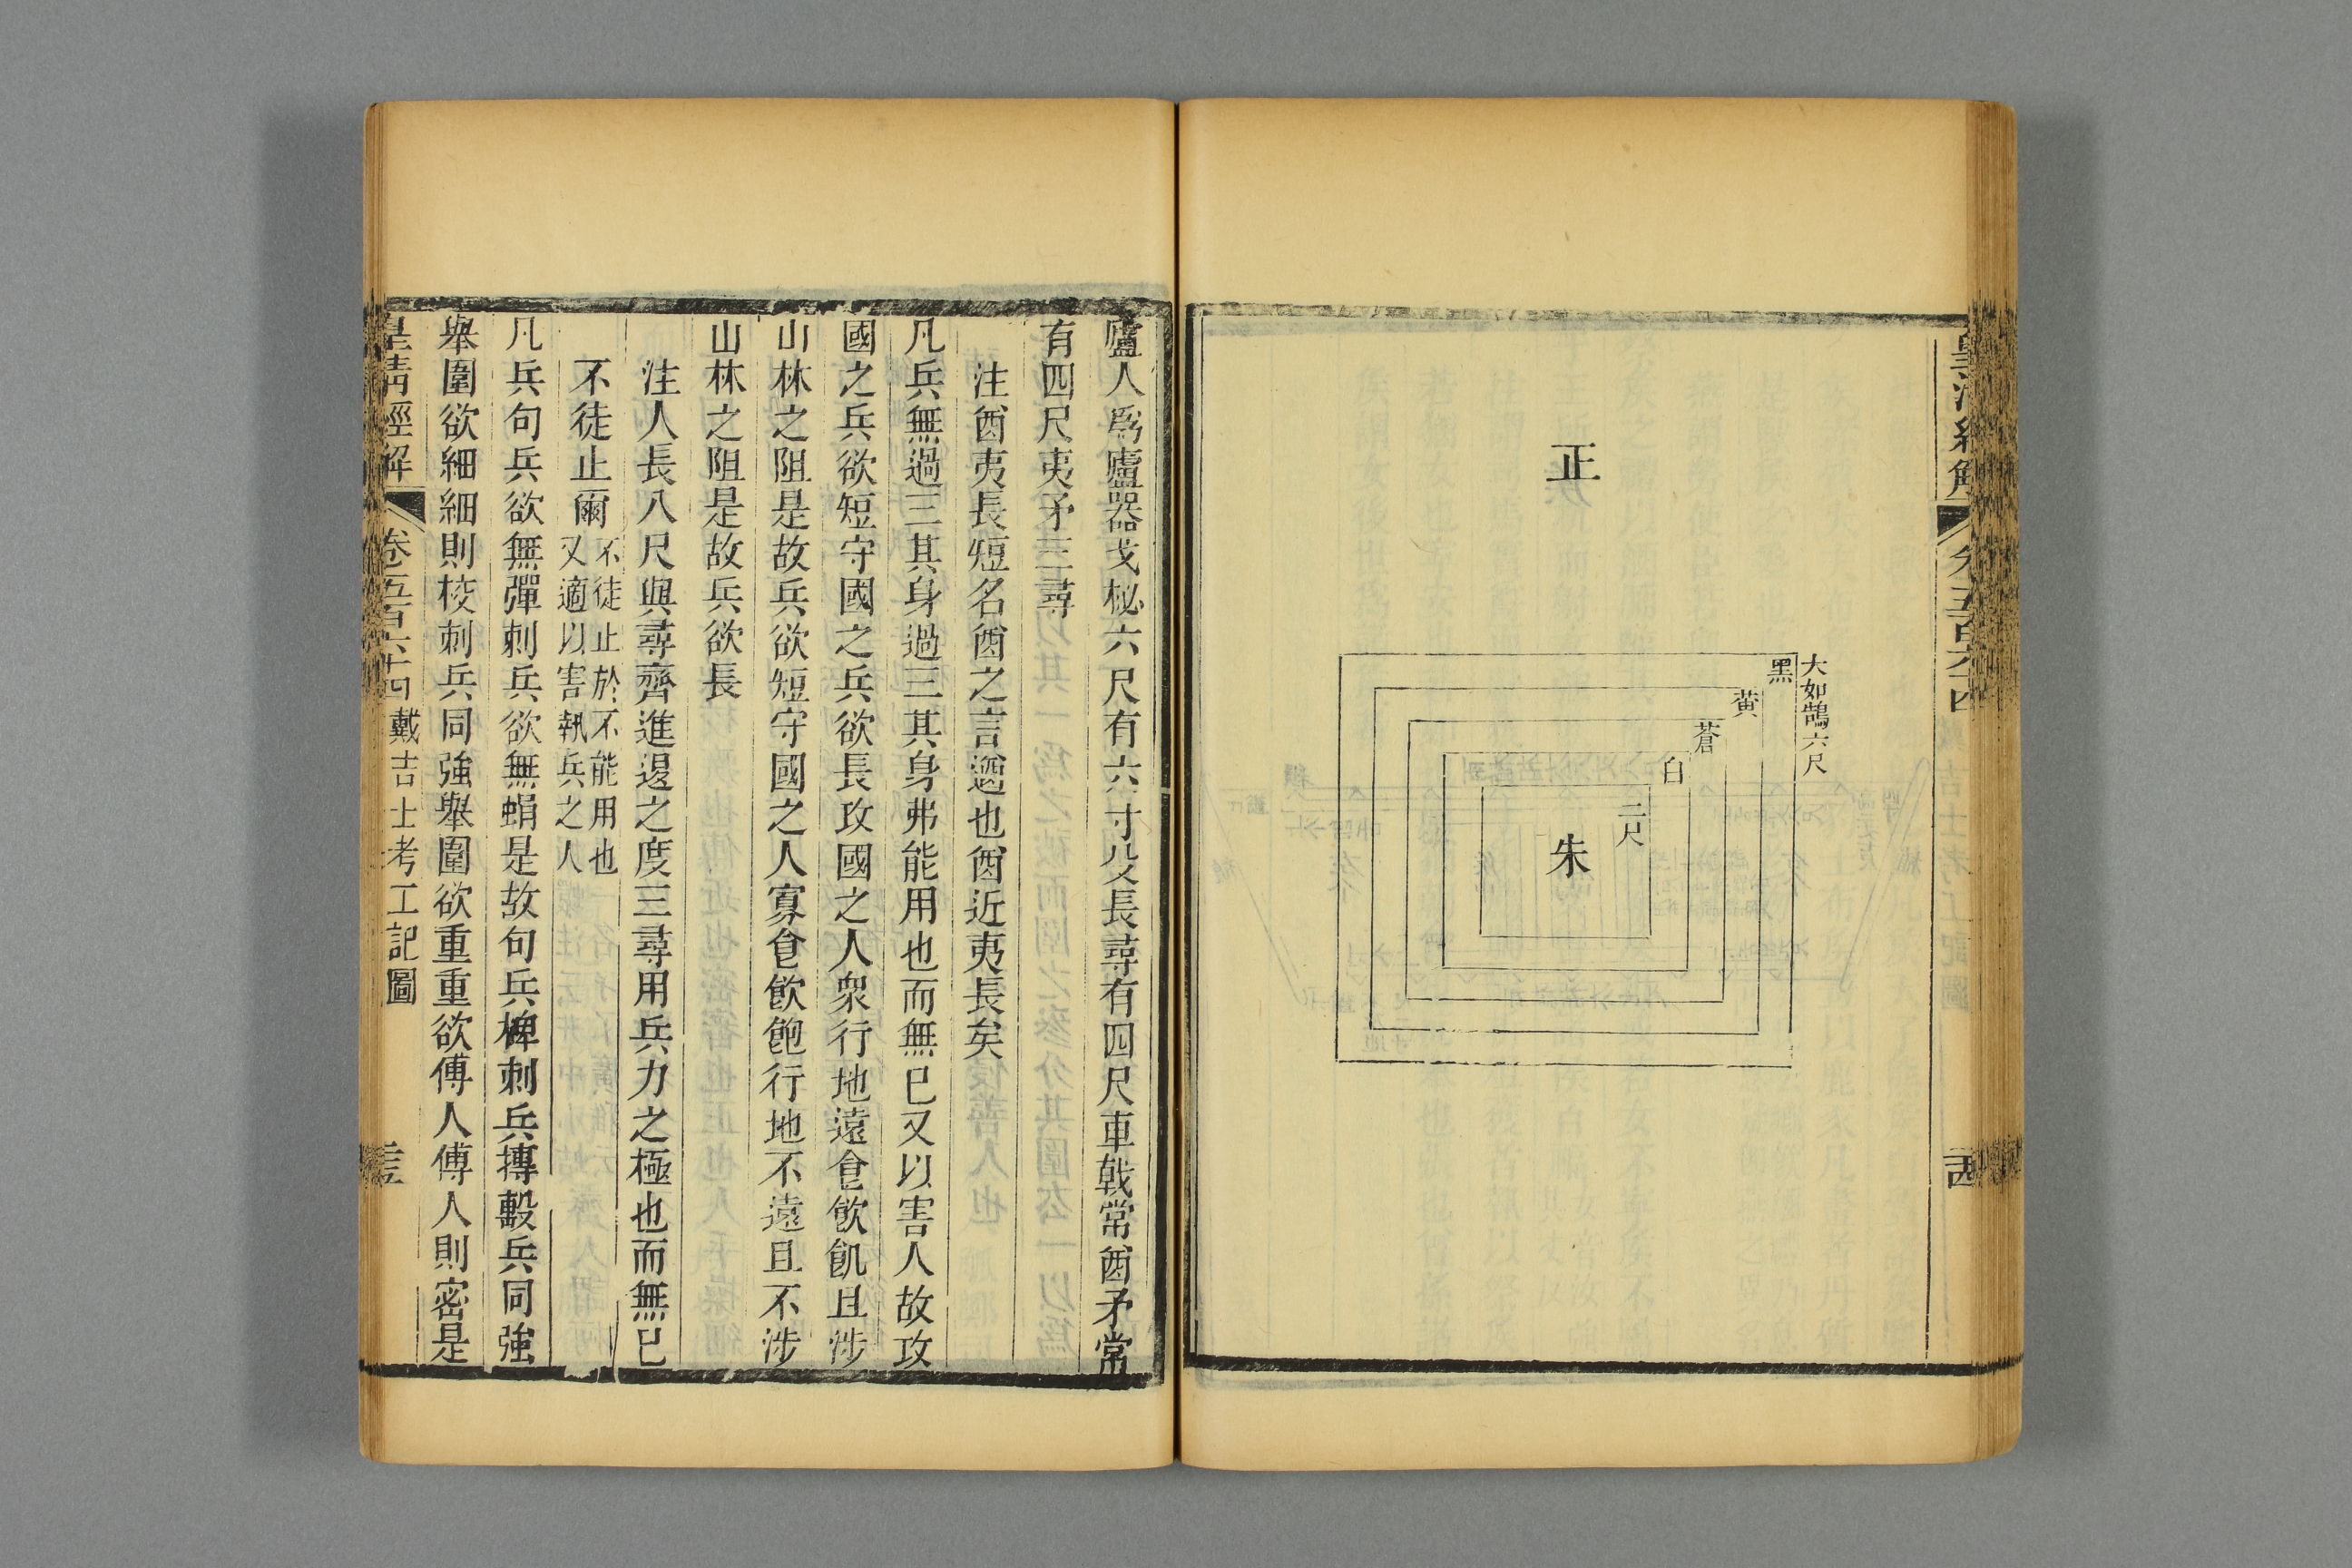 皇清經解
卷五百六十四
正
大如鵠六尺
黑
黃
蒼
白
二尺
朱
廬人爲廬器戈柲六尺有六寸殳長尋有四尺車戟常酋矛常
有四尺夷矛三尋
注酋夷長短名酋之言遒也酋近夷長矣
凡兵無過三其身過三其身弗能用也而無已又以害人故攻
國之兵欲短守國之兵欲長攻國之人衆行地遠食飲飢且涉
山林之阻是故兵欲短守國之人寡食飲飽行地不遠且不涉
山林之阻是故兵欲長
注人長八尺與尋齊進退之度三尋用兵力之極也而無已
不徒止爾
不徒止於不能用也
又適以害執兵之人
凡兵句兵欲無彈刺兵欲無蜎是故句兵椑刺兵摶毄兵同強
舉圍欲細細則校刺兵同強舉圍欲重重欲傅人傅人則密是
皇清經解
卷五百六十四
戴吉士考工記圖